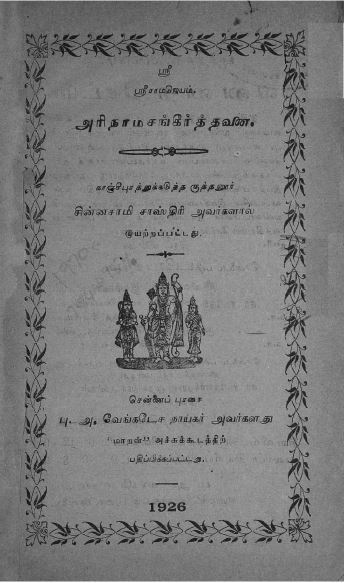 ஸ்ரீ
ஸ்ரீராமஜெயம்.
அரிநாமசங்கீர்த்தவன.
காஞ்சிபுரத்துக்கடுத்த கூத்தனூர்
சின்னசாமி சாஸ்திரி அவர்களால்
இயற்றப்பட்டது.
சென்னைப் புரசை
பு. அ. வேங்கடேச நாயகர் அவர்களது
"மாறன்" அச்சுக்கூடத்திற்
பதிப்பிக்கப்பட்டது.
1926